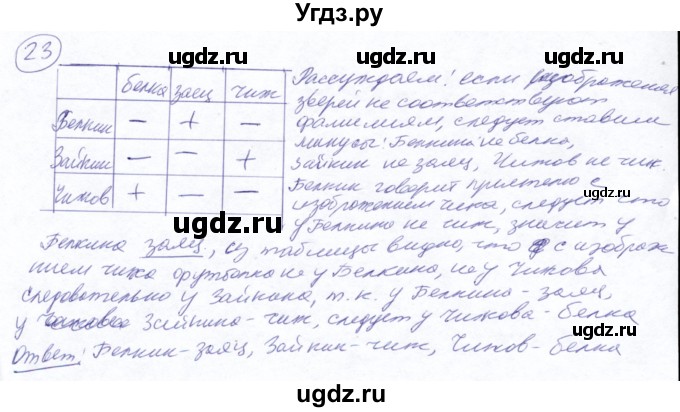 Угдз.ру
ugdz.ru ugdz.ru
23
белка заец чиж
Белкин — + —
Зайкин — — +
Чижов + — —
Рассуждаем! если изображения
зверей не соответствуют
фамилиям, следует ставим
минусы: Белкина не белка,
Зайкин не заяц, Чижов не чиж.
Белкин говорит приятелю с
изображением чижа, следует что
у Белкина не чиж, значит у
Белкина заяц, из таблицы видно, что с изображе
нием чижа футболка не у Белкина, не у Чижова
следовательно у Зайкина, т.к. у Белкина - заяц,
у Зайкина - чиж, следует у Чижова - белка
Ответ: Белкин - заяц, Зайкин - чиж, Чижов - белка
ugdz.ru ugdz.ru
ugdz.ru ugdz.ru
ugdz.ru ugdz.ru